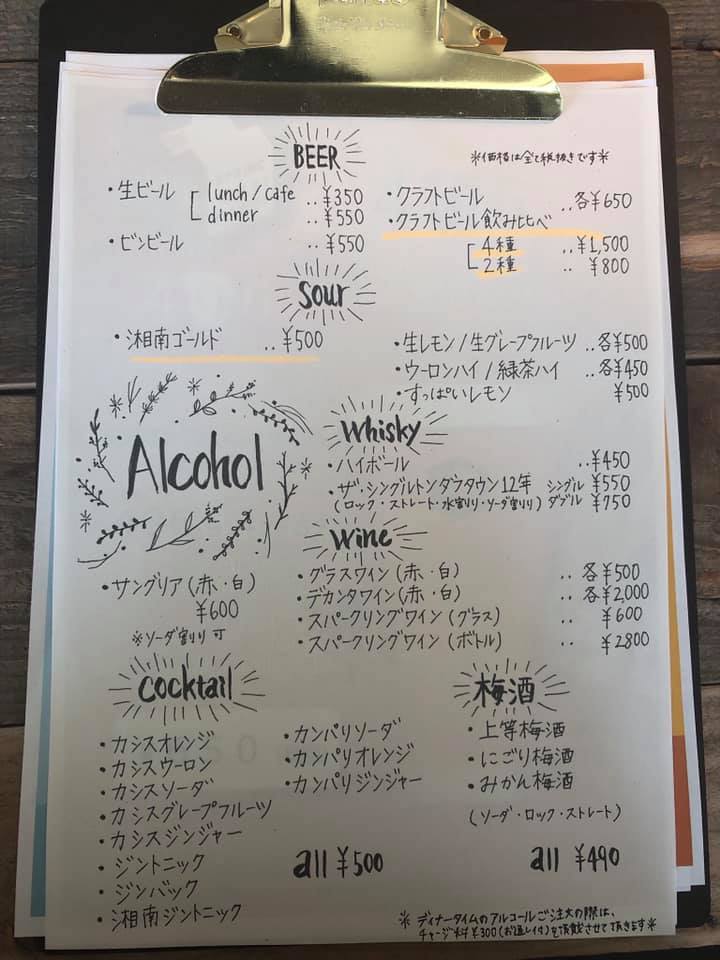 BEER
※価格は全て税抜きです※
・生ビール
lunch/cafe ‥¥350
dinner ‥¥550
・ビンビール ‥¥550
・クラフトビール ‥各¥650
・クラフトビール飲み比べ
4種 ‥¥1,500
2種 ‥ ¥800
Sour
・湘南ゴールド ‥¥500
・生レモン/生グレープフルーツ ‥各¥500
・ウーロンハイ/緑茶ハイ ‥各¥450
・すっぱいレモン ¥500
Alcohol
・サングリア(赤・白)
¥600
※ソーダ割り可
Whisky
・ハイボール ‥¥450
・ザ・シングルトンダフタウン12年 シングル ¥550
(ロック・ストレート・水割り・ソーダ割り) ダブル ¥750
Wine
・グラスワイン(赤・白) ‥ 各¥500
・デカンタワイン(赤・白) ‥ 各¥2,000
・スパークリングワイン(グラス) ‥ ¥600
・スパークリングワイン(ボトル) ‥ ¥2800
Cocktail
・カシスオレンジ
・カシスウーロン
・カシスソーダ
・カシスグレープフルーツ
・カシスジンジャー
・ジントニック
・ジンバック
・湘南ジントニック
・カンパリソーダ
・カンパリオレンジ
・カンパリジンジャー
all ¥500
梅酒
・上等梅酒
・にごり梅酒
・みかん梅酒
(ソーダ・ロック・ストレート)
all ¥490
※ディナータイムのアルコールご注文の際は、
チャージ料¥300(お通し付)を頂戴させて頂きます※